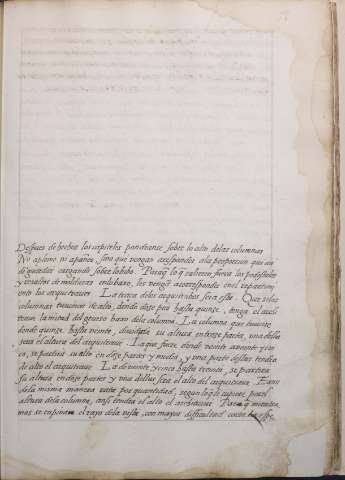 Despues de hechos los capiteles pondranse sobre lo alto delas columnas
No aplomo ni apañes, sino que vengan arespondes ala proporcion que an
de quedar cargando sobre lo hido. Para q lo q salieren fuera los podestales
y tovaties de moldura en lo baxo, les venga acorrespondes en el repartim
ento los arquitraves. La traça delos arquitrabes sera esta. Que si las
columnas tuvieren de alto, dende doze pies hasta quinze, tenga el arqui
trave la mitad del grueso baxo dela columna. La columna que tuviere
dende quinze hasta veinte, dividase su altura entreze partes, una dellas
sera el altura del arquitrave. La que fuere dende veinte a veinte y cin
co, se partira su alto en doze partes y media, y una parte dellas tendra
de alto el arquitrave. La de veinte y cinco hasta treinta, se partira
su altura en doze partes y una dellas sera el alto del arquitrave. E ansi
de la misma manera suba por quantidad, segun la q le cupiere para el
altura dela columna, ansi tendra el alto el architrave. Porque mientras
mas se espacia el rayo dela vista, con mayor dificultad corta